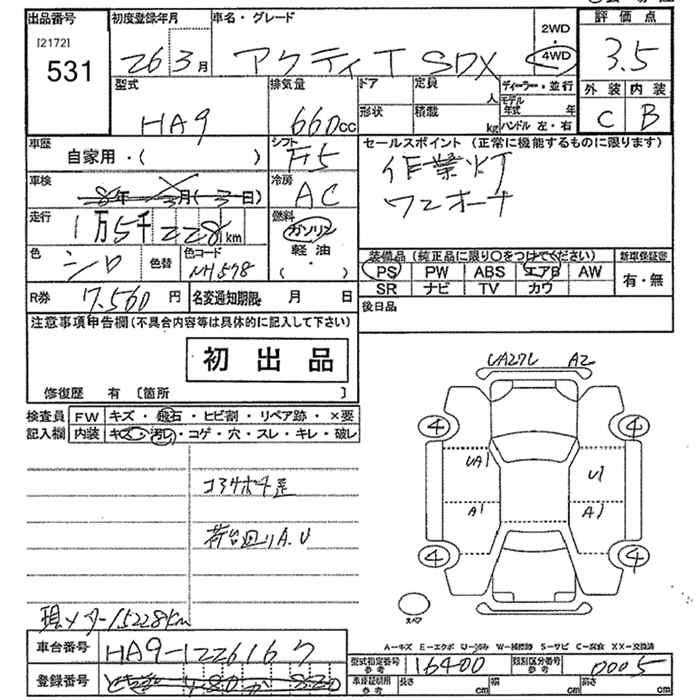 出品番号 初度登録年月 車名・グレード 2WD・4WD 評価点
[2172]
531
26 3月
アクティT SDX
3.5
型式 排気量 ドア 定員 人 ディーラー・並行 外装 内装
HA9 660cc 形状 積載 kg モデル年式 年 ハンドル 左・右 C B
車歴 シフト セールスポイント (正常に機能するものに限ります)
自家用・( ) F5
作業灯
ワンオーナ
車検 冷房
年 3月(3日) AC
走行 燃料
1万5千228km ガソリン
軽油
・( )
色 色替 色コード
シロ NH578
装備品(純正品に限り○をつけてください) 新車保証書
PS PW ABS エアB AW 有・無
SR ナビ TV カワ
R券 7,560円 名変通知期限 月 日 後日品
注意事項申告欄(不具合内容等は具体的に記入して下さい)
初出品
修復歴 有 [箇所 ]
検査員 FW キズ・飛石・ヒビ割・リペア跡・×要
記入欄 内装 キズ・汚れ・コゲ・穴・スレ・キレ・破レ
UA27L A2
4 4
UA1 U1
A1 A1
4 4
コアサポキ歪
荷台廻りA.U
スペア
現メーター15228km
A－キズ E－エクボ U－凹み W－補修跡 S－サビ C－腐食 XX－交換済
車台番号 HA9-1226167
型式指定番号 参考 16400 類別区分番号 参考 0005
登録番号
車庫証明用 参考 長さ cm 幅 cm 高さ cm